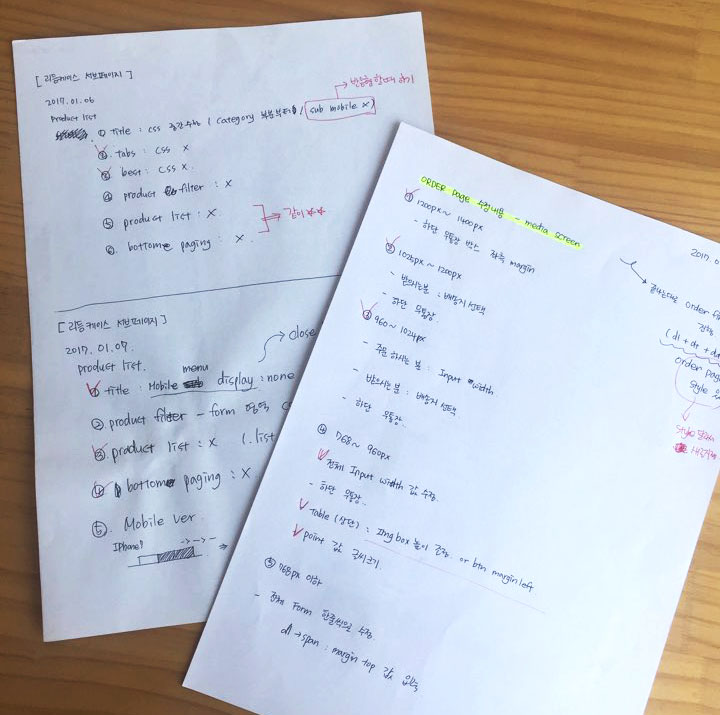 [리듬케이스 서브페이지]
2017.01.06
Product list
① title : css 중간수정 ( category 부분부터 / sub mobile x)
반응형할때 하기
② tabs : css x
③ best : css x.
④ product filter : x
⑤ product list : x.
같이 ☆☆
⑥ bottom paging : x.
[리듬케이스 서브페이지]
2017.01.07.
product list.
① title : Mobile menu display : none
close
② product filter - form 영역
③ product list : x (.list
④ bottom paging : x
⑤. Mobile ver.
IPhone
ORDER page 수정내용 - media screen
① 1200px ~ 1400px
- 하단 무통장 박스 좌측 margin
② 1024px ~ 1200px
- 받으시는분 : 배송지 선택
- 하단 무통장.
③ 960 ~ 1024px
- 주문하시는 분 : Input width
- 받으시는분 : 배송지 선택
- 하단 무통장.
④ 768 ~ 960px
전체 Input width 값 수정.
- 하단 무통장.
Table (상단) : Img box 높이 조정. or btn margin left
point 값 글씨크기.
⑤ 768px 이하
- 전체 Form 한줄씩으로 수정.
dl → span : margin top 값 입력
2017.0
order
(dl + dt + dd
order pag
style
style